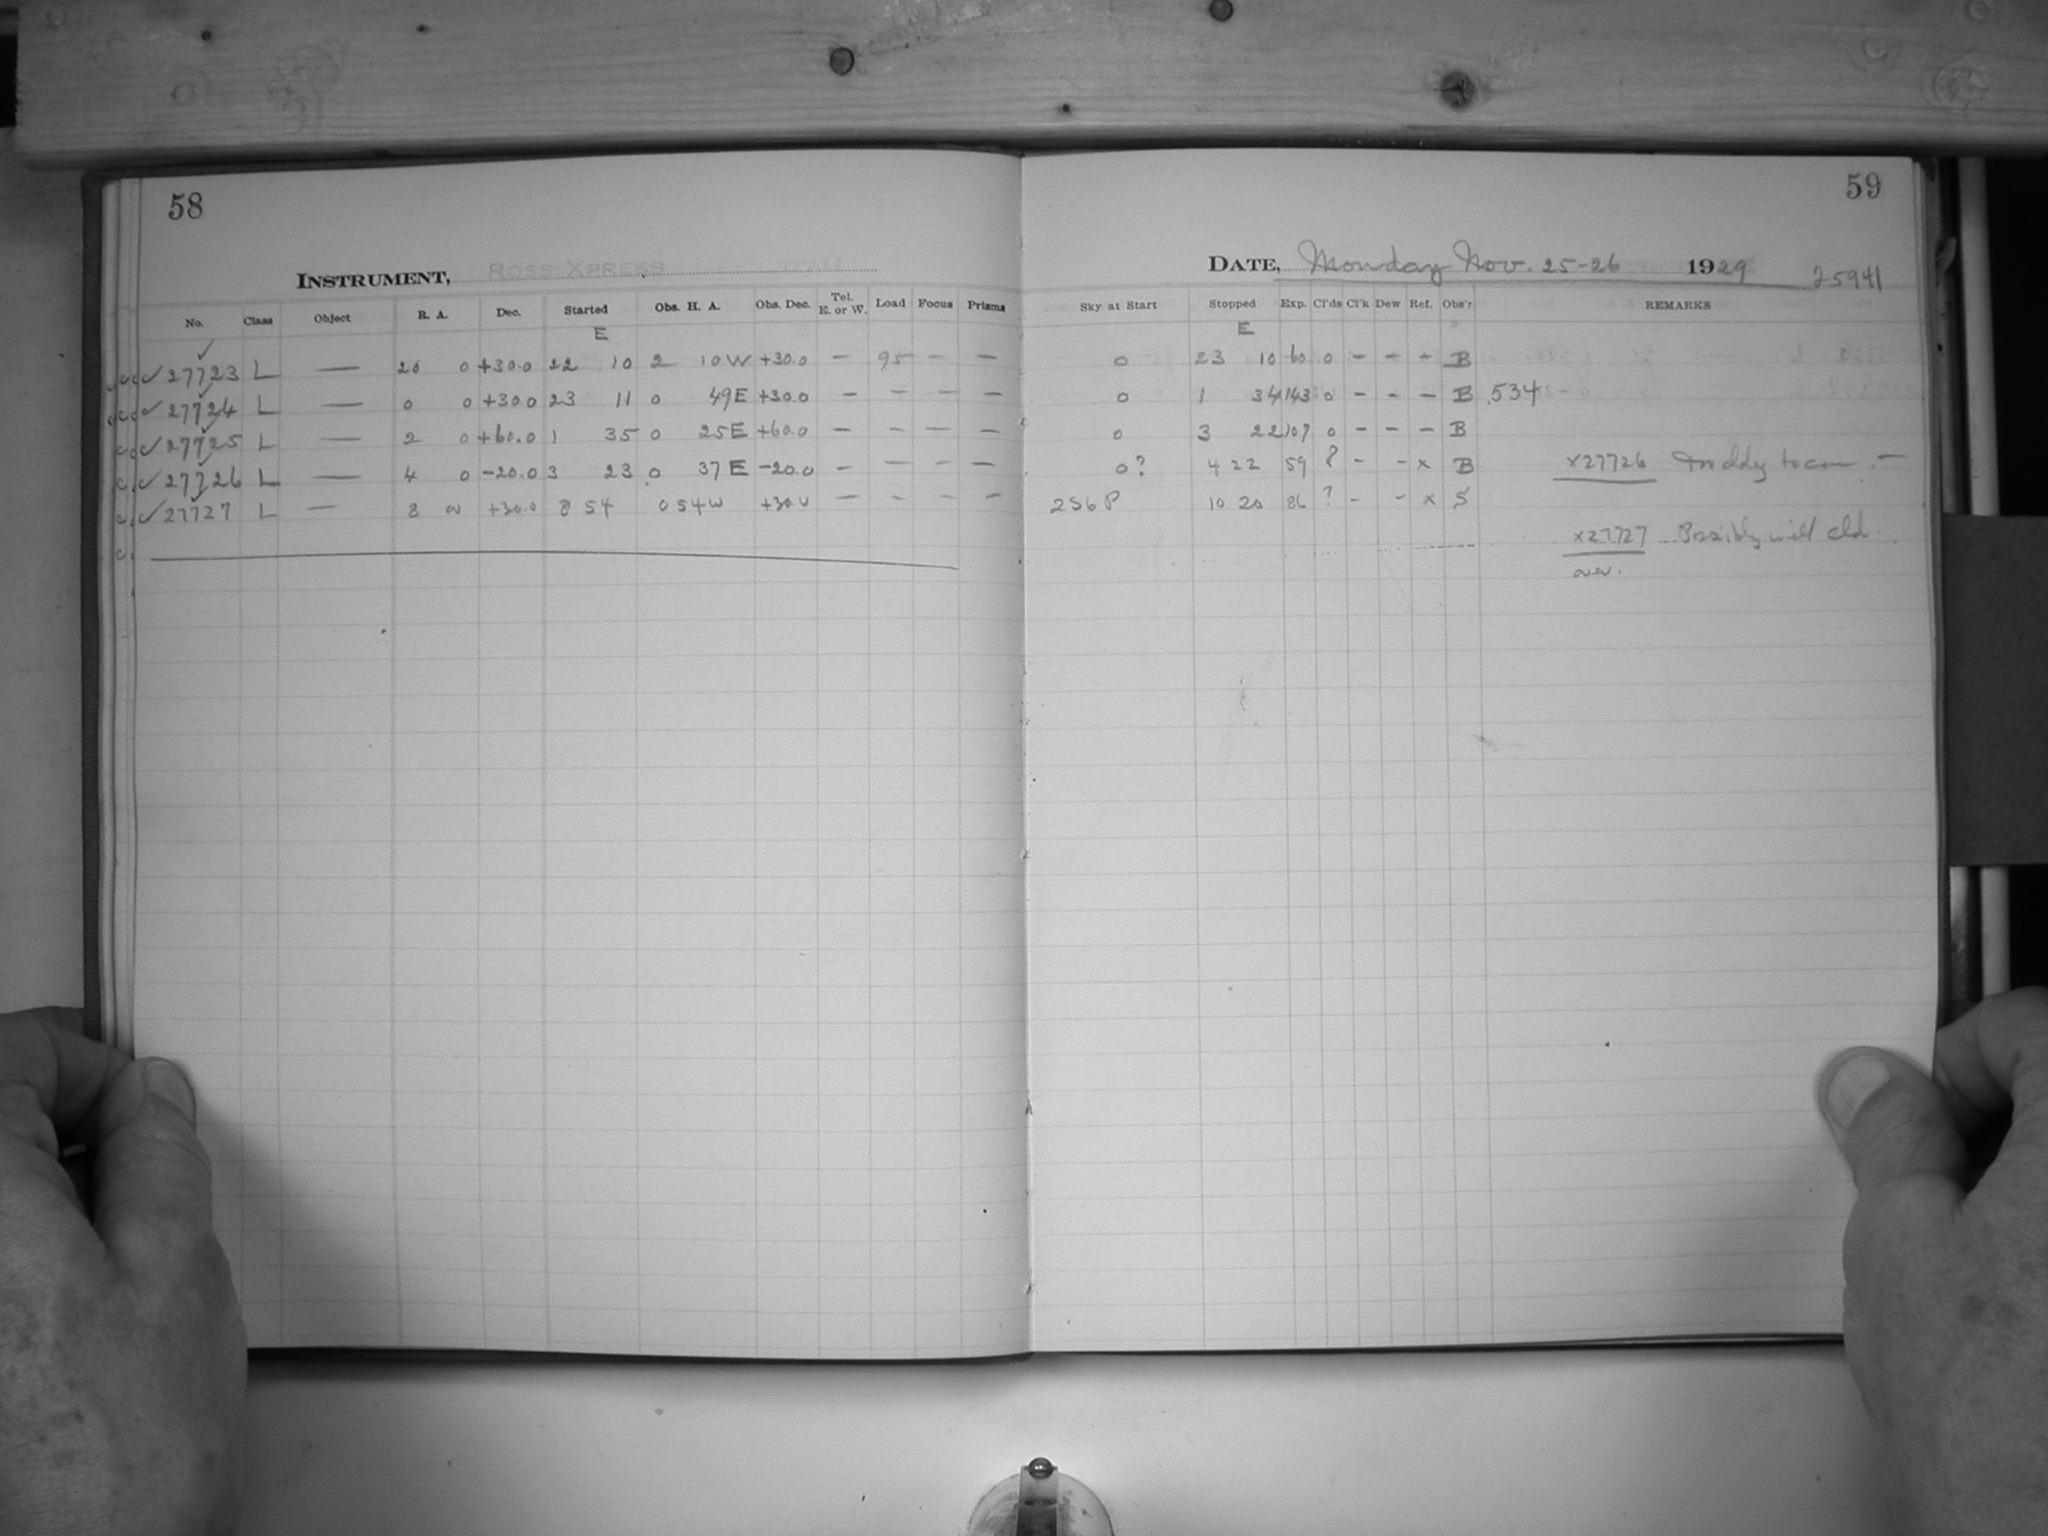 58
59
INSTRUMENT, ROSS XPRESS
DATE, Monday Nov. 25-26 1929 25941
No. Class Object R. A. Dec. Started Obs. H. A. Obs. Dec. Tel. E. or W. Load Focus Prisms Sky at Start Stopped Exp. Cl'ds Cl'k Dew Ref. Obs'r REMARKS
E E
✓ 27723 L — 20 0 +30.0 22 10 2 10 W +30.0 — 95 — — 0 23 10 60 0 - - - B
✓ 27724 L — 0 0 +30.0 23 11 0 49 E +30.0 — — — — 0 1 34 143 0 - - - B 534
✓ 27725 L — 2 0 +60.0 1 35 0 25 E +60.0 — — — — 0 3 22 107 0 - - - B
✓ 27726 L — 4 0 -20.0 3 23 0 37 E -20.0 — — — — 0? 4 22 59 ? - - x B x27726
✓ 27727 L — 8 +30.0 8 54 0 54 W +30.0 — — — — 256 P 10 20 86 ? - - x S
x27727 Possibly will cld
over.